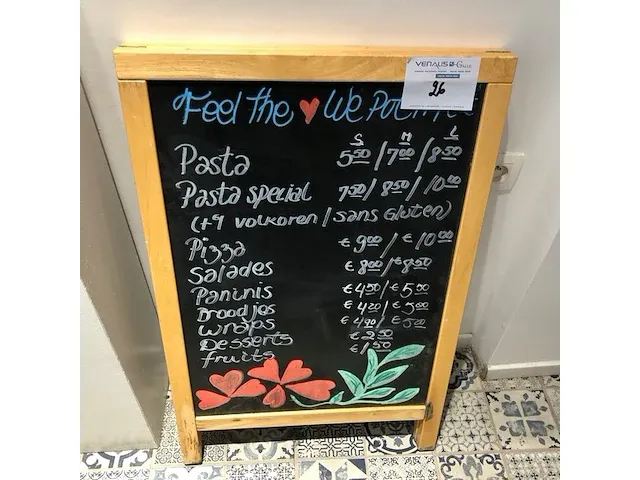 VENALIS
26
Feel the ♥ We
S M L
Pasta 5⁵⁰ / 7⁰⁰ / 8⁵⁰
Pasta special 7⁵⁰ / 8⁵⁰ / 10⁰⁰
(+1 volkoren / sans Gluten)
Pizza € 9⁰⁰ / € 10⁰⁰
Salades € 8⁰⁰ / € 8⁵⁰
Paninis € 4⁵⁰ / € 5⁵⁰
Broodjes € 4²⁰ / € 5⁰⁰
wraps € 4⁹⁰ / € 5⁰⁰
Desserts € 2⁵⁰
fruits € 1⁵⁰